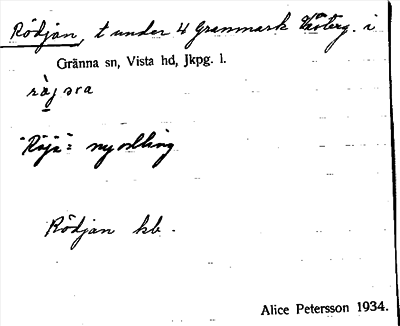 Rödjan, t under 4 Granmark Västerg. i
Gränna sn, Vista hd, Jkpg. l.
"Röja" = nyodling
Rödjan kb.
Alice Petersson 1934.